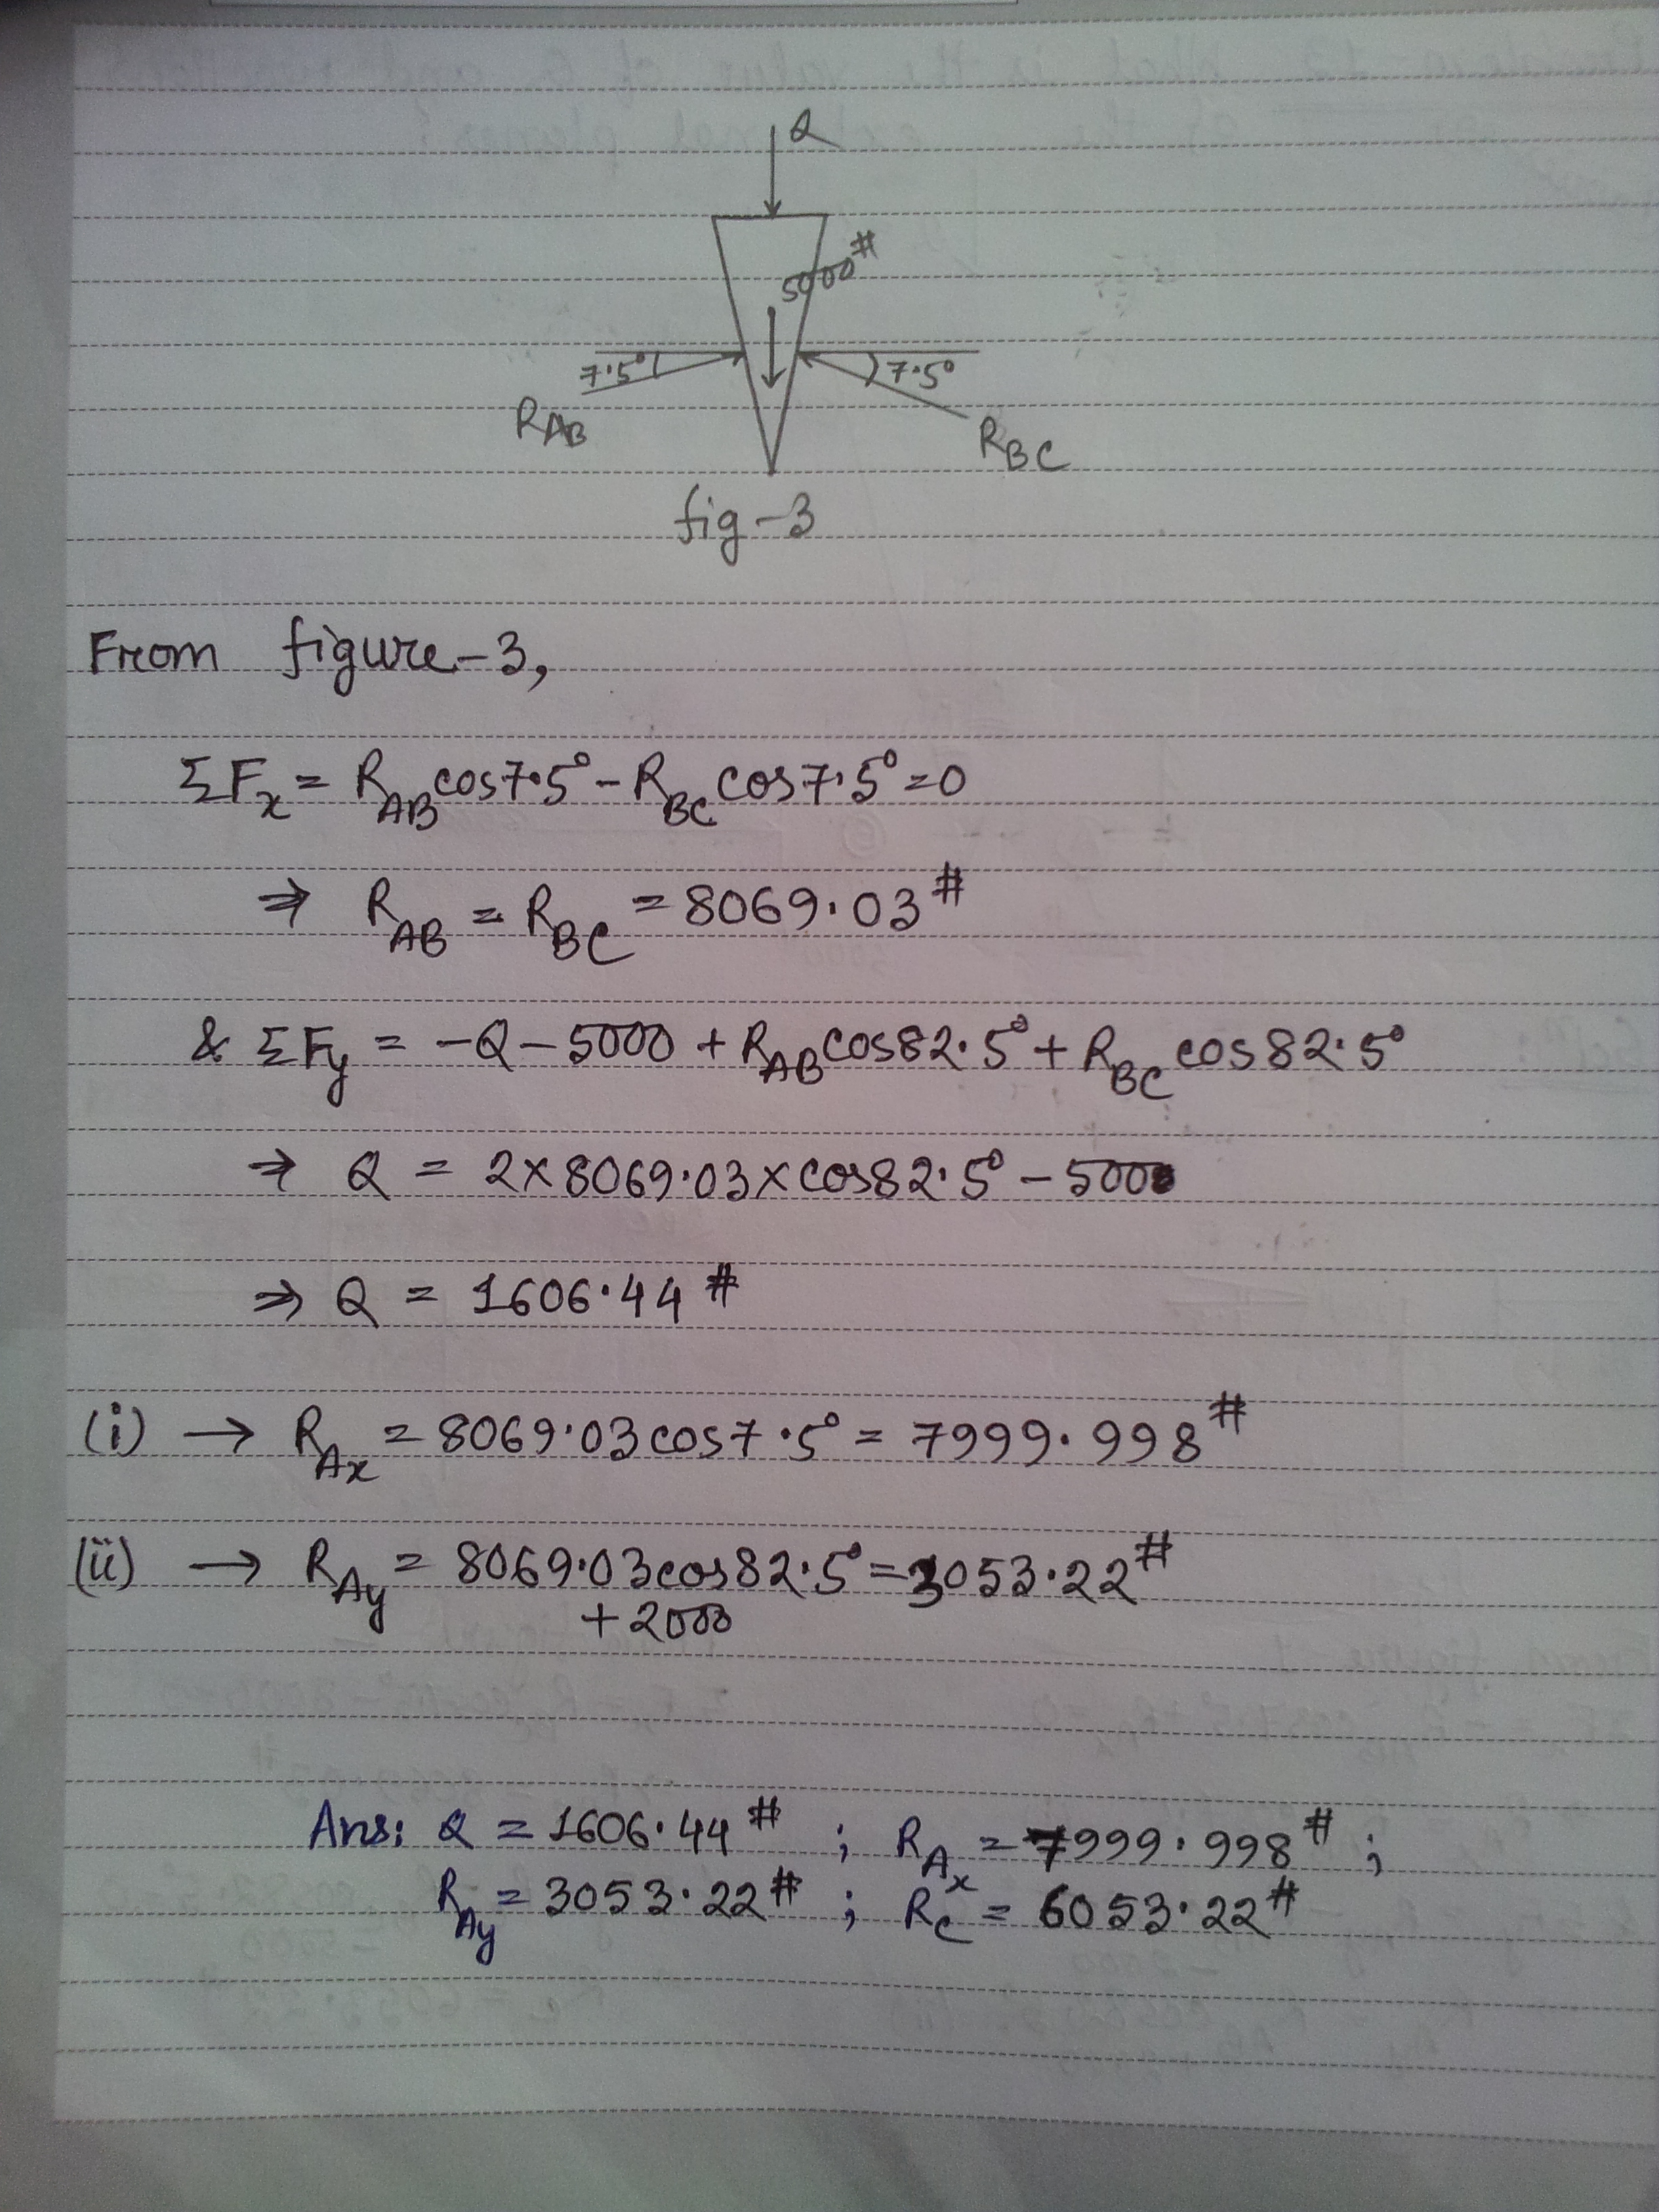 Q
5000#
7.5° 7.5°
R_AB R_BC
fig-3
From figure-3,
ΣF_x = R_AB cos7.5° - R_BC cos7.5° = 0
⇒ R_AB = R_BC = 8069.03#
& ΣF_y = -Q - 5000 + R_AB cos82.5° + R_BC cos82.5°
⇒ Q = 2×8069.03×cos82.5° - 5000
⇒ Q = 1606.44#
(i) → R_Ax = 8069.03cos7.5° = 7999.998#
(ii) → R_Ay = 8069.03cos82.5° = 3053.22#
+2000
Ans: Q = 1606.44# ; R_Ax = 7999.998# ;
R_Ay = 3053.22# ; R_C = 6053.22#